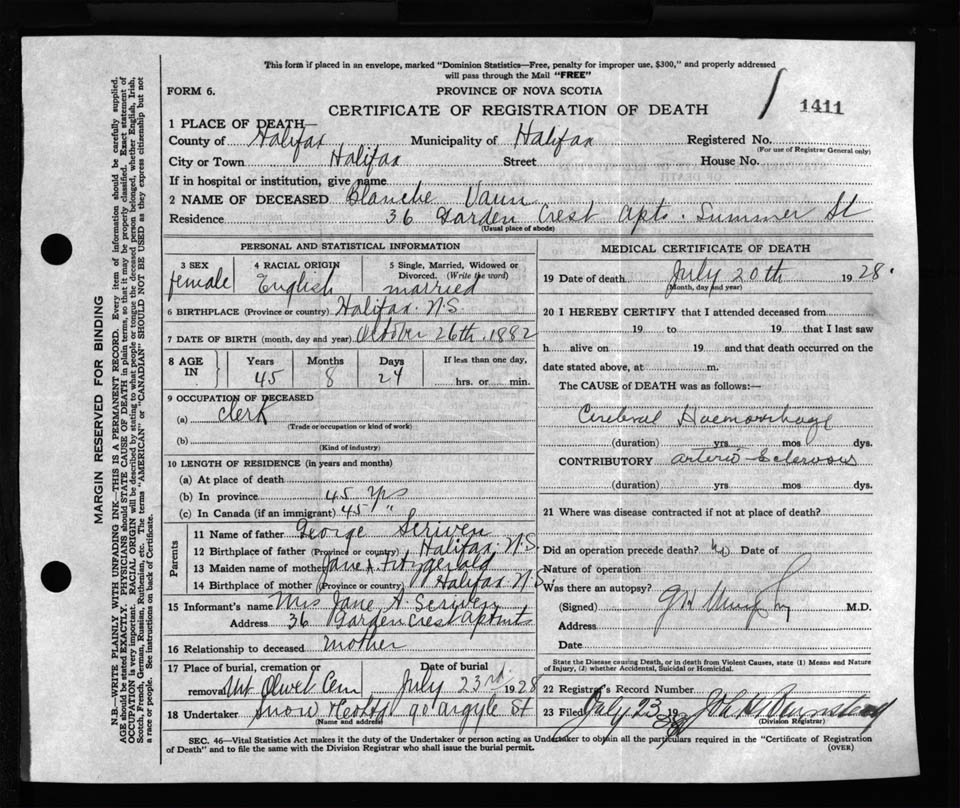 This form if placed in an envelope, marked "Dominion Statistics—Free, penalty for improper use, $300," and properly addressed
will pass through the Mail "FREE"
FORM 6. PROVINCE OF NOVA SCOTIA
CERTIFICATE OF REGISTRATION OF DEATH 1411
1 PLACE OF DEATH—
County of Halifax Municipality of Halifax Registered No.
(For use of Registrar General only)
City or Town Halifax Street House No.
If in hospital or institution, give name
2 NAME OF DECEASED Blanche Vaun
Residence 36 Garden Crest Apts. Summer St
(Usual place of abode)
PERSONAL AND STATISTICAL INFORMATION
3 SEX 4 RACIAL ORIGIN 5 Single, Married, Widowed or
Divorced. (Write the word)
female English married
6 BIRTHPLACE (Province or country) Halifax. N.S.
7 DATE OF BIRTH (month, day and year) October 26th. 1882
8 AGE IN Years Months Days If less than one day,
45 8 24 hrs. or min.
9 OCCUPATION OF DECEASED
(a) clerk
(Trade or occupation or kind of work)
(b)
(Kind of industry)
10 LENGTH OF RESIDENCE (in years and months)
(a) At place of death
(b) In province 45 Yrs
(c) In Canada (if an immigrant) 45 "
Parents
11 Name of father George Scriven
12 Birthplace of father (Province or country) Halifax. N.S.
13 Maiden name of mother Jane A. Fitzgerald
14 Birthplace of mother (Province or country) Halifax N.S.
15 Informant's name Mrs Jane A. Scriven
Address 36 Garden Crest Apmts
16 Relationship to deceased mother
17 Place of burial, cremation or Date of burial
removal Mt Olivet Cem July 23rd. 1928
18 Undertaker Snow 90 Argyle St
(Name and address)
MEDICAL CERTIFICATE OF DEATH
19 Date of death July 20th 1928.
(Month, day and year)
20 I HEREBY CERTIFY that I attended deceased from
19 to 19 that I last saw
h alive on 19 and that death occurred on the
date stated above, at m.
The CAUSE of DEATH was as follows:—
Cerebral Haemorrhage
(duration) yrs mos dys.
CONTRIBUTORY arterio-sclerosis
(duration) yrs. mos. dys.
21 Where was disease contracted if not at place of death?
Did an operation precede death? Date of
Nature of operation
Was there an autopsy?
(Signed) M.D.
Address
Date
State the Disease causing Death, or in death from Violent Causes, state (1) Means and Nature
of Injury, (2) whether Accidental, Suicidal or Homicidal.
22 Registrar's Record Number
23 Filed July 23 19 28
(Division Registrar)
SEC. 46—Vital Statistics Act makes it the duty of the Undertaker or person acting as Undertaker to obtain all the particulars required in the "Certificate of Registration
of Death" and to file the same with the Division Registrar who shall issue the burial permit. (OVER)
MARGIN RESERVED FOR BINDING
N.B.—WRITE PLAINLY WITH UNFADING INK—THIS IS A PERMANENT RECORD. Every item of information should be carefully supplied.
AGE should be stated EXACTLY. PHYSICIANS should STATE CAUSE OF DEATH in plain terms, so that it may be properly classified. Exact statement of
OCCUPATION is very important. RACIAL ORIGIN will be described by stating to what people or tongue the deceased person belonged, whether English, Irish,
Scotch, French, German, Russian, Ruthenian, etc. The terms "AMERICAN" or "CANADIAN" SHOULD NOT BE USED as they express citizenship but not
a race or people. See instructions on back of Certificate.